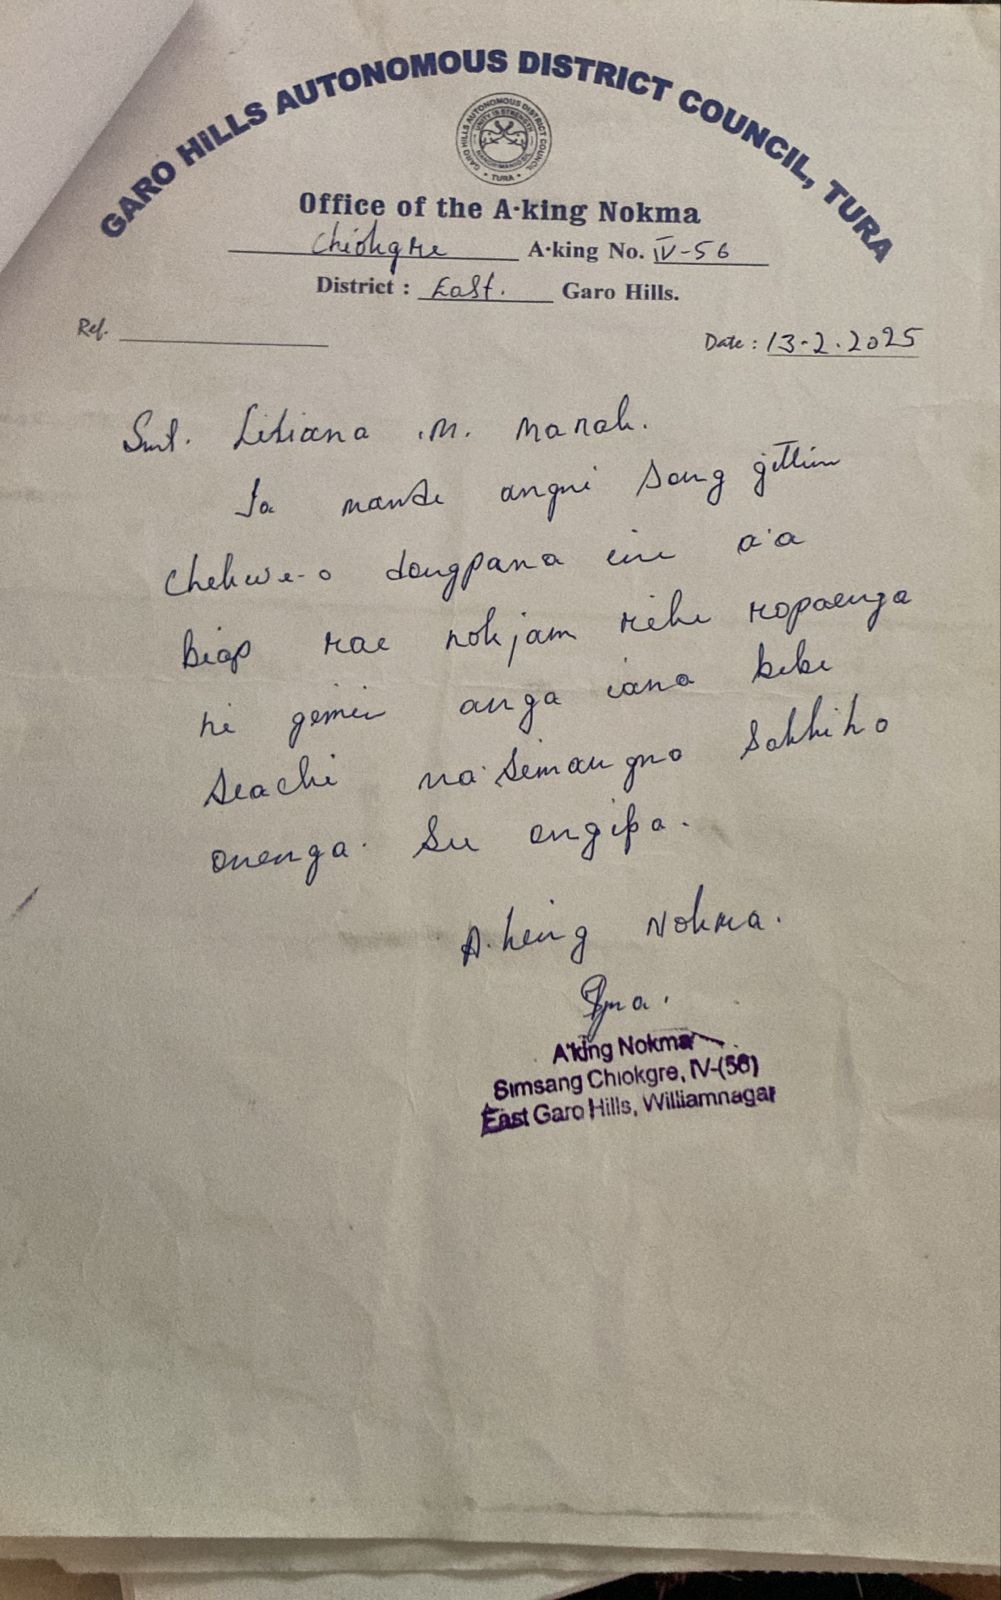 GARO HILLS AUTONOMOUS DISTRICT COUNCIL, TURA
GARO HILLS AUTONOMOUS DISTRICT COUNCIL
UNITY IS STRENGTH
• TURA •
Office of the A·king Nokma
Chiokgre A·king No. IV-56
District : East. Garo Hills.
Ref.
Date : 13-2.2025
Smt. Liliana .M. Marak.
Ia mande angni song gittim
Chekwe-o dongpana ine a·a
biap rae nokjam rike ropaenga
ni gimin anga iana bebe
seachi na·simangno sakkiko
onenga. Su ongipa.
A·king Nokma.
A'king Nokma
Simsang Chiokgre, IV-(56)
East Garo Hills, Williamnagar